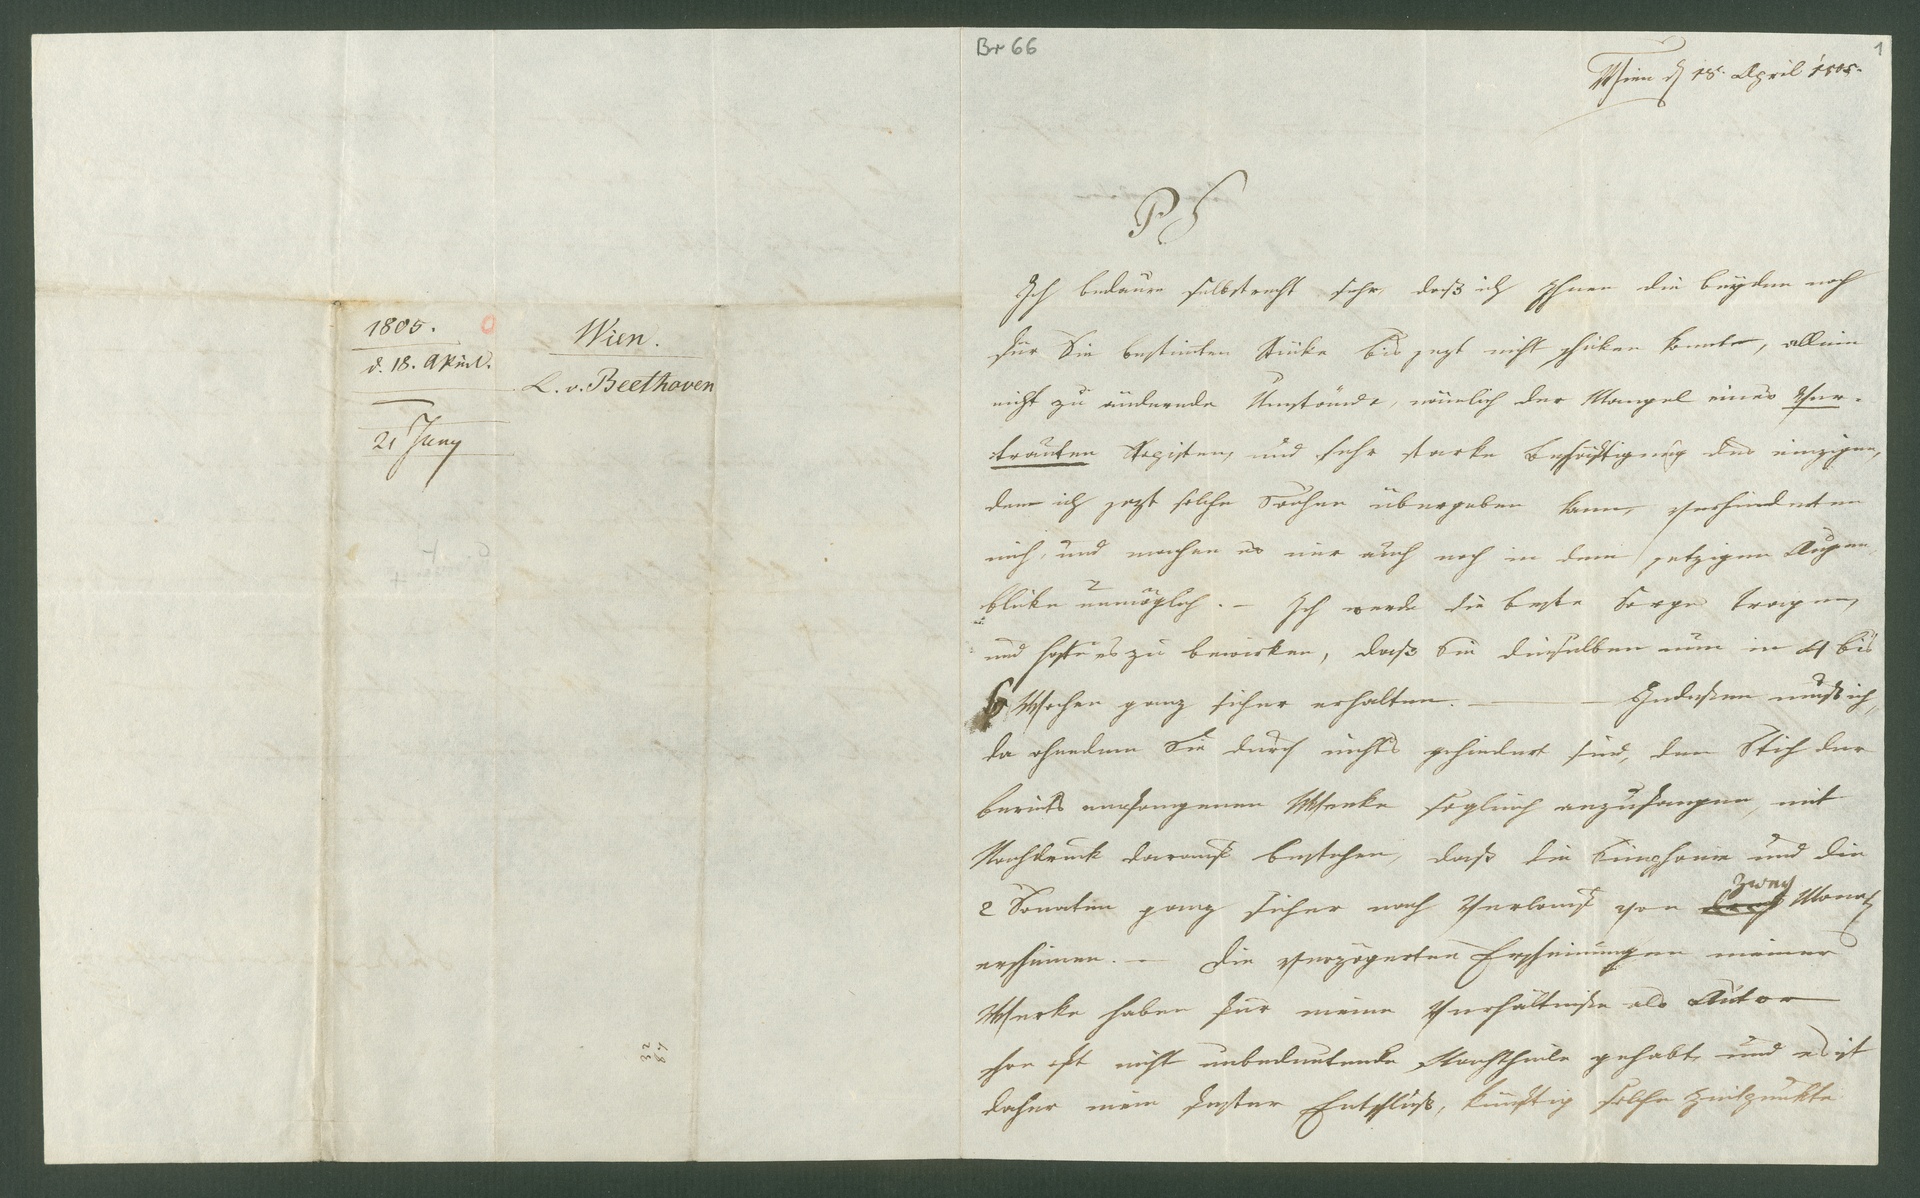 1805.
d. 18. April.
21 Juny
Wien.
L. v. Beethoven
32
87
Br 66
1
Wien d 18. April 1805.
P S
Ich bedaure selbst recht sehr, daß ich Ihnen die beyden noch
für Sie bestimten Stüke bis jezt nicht schiken konnte, allein
nicht zu ändernde Umstände, nämlich der Mangel eines Ver-
trauten Kopisten, und sehr starke Beschäftigung des einzigen,
dem ich jezt solche Sachen übergeben kann, verhinderten
mich, und machen es mir auch noch in dem jetzigen Augen
blike unmöglich. – Ich werde die beste Sorge tragen,
und hoffe es zu bewirken, daß Sie dieselben nun in 4 bis
6 Wochen ganz sicher erhalten. — Indessen muß ich,
da ohnedem Sie durch nichts gehindert sind, den Stich der
bereits empfangenen Werke sogleich anzufangen, mit
Nachdruck darauf bestehen, daß die Simphonie und die
2 Sonaten ganz sicher nach Verlauf von zwey Monath
erscheinen. – Die verzögerten Erscheinungen meiner
Werke haben für meine Verhältniße als Autor
schon oft nicht unbedeutende Nachtheile gehabt, und es ist
daher mein fester Entschluß, künftig solche Zeitpunkte